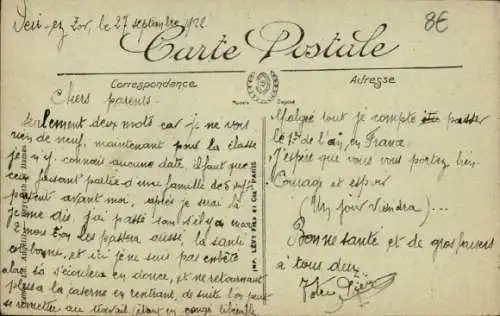 Deir-ez Zor, le 27 septembre 1922
8€
Carte Postale
Correspondance
Adresse
Modèle Déposé
Chers parents.
Seulement deux mots car je ne vois
rien de neuf, maintenant pour la classe
je n'y connais aucune date il faut que
ceux faisant partie d'une famille des
partent avant moi, après je serai le
je me dis. j'ai passé
mois l'on les passera aussi, la santé
est bonne, et ici je ne suis pas embêté
alors sa s'écoulera en douce, et ne retournant
plus a la caserne en rentrant, de suite l'on peut
se remettre au travail, étant en congé libérable
IMP. LÉVY FILS ET CIE PARIS
Malgré tout je compte passer
le 1er de l'an, en France.
J'espère que vous vous portez bien
Courage et espoir
(Un jour viendra)...
Bonne santé et de gros baisers
à tous deux.
Votre